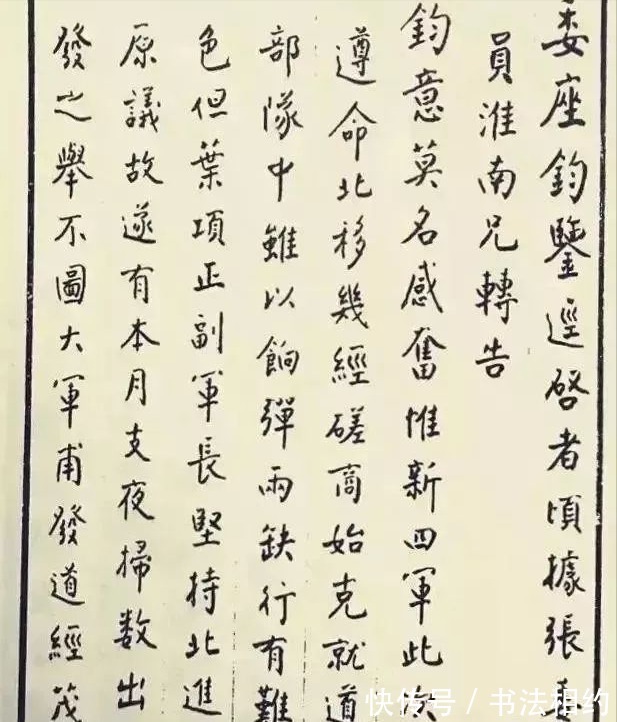 委座鈞鑒逕啓者頃據張
員淮南兄轉告
鈞意莫名感奮惟新四軍此次
遵命北移幾經磋商始克就道
部隊中雖以餉彈兩缺行有難
色但葉項正副軍長堅持北進
原議故遂有本月支夜掃数出
發之舉不圖大軍甫發道經茂
快传号 / 书法相约